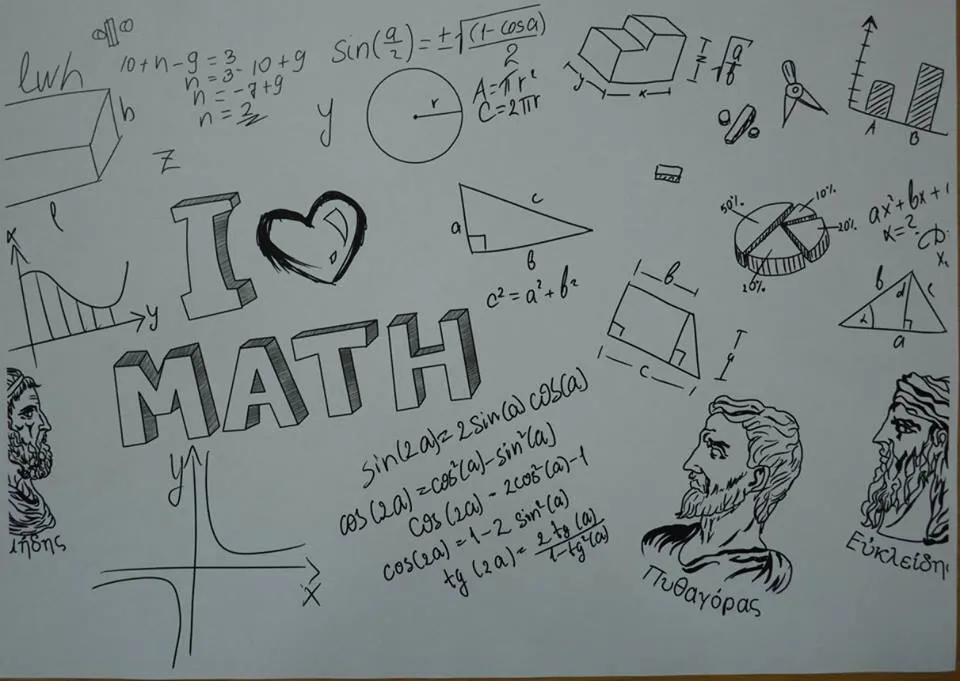 lwh
10+n-9=3
n=3-10+9
n=-7+9
n=2
h
l
z
sin(a/2)=±√(1-cosa)/2
y
r
A=πr²
C=2πr
y
x
z
√a/b
A
B
I ♥
MATH
x
y
a
c
b
c²=a²+b²
50%
10%
20%
20%
ax²+bx+
x=?
b
c
y
b
d
c
a
sin(2a)=2sin(a)cos(a)
cos(2a)=cos²(a)-sin²(a)
cos(2a)-2cos²(a)-1
cos(2a)=1-2 sin²(a)
tg(2a)=2tg(a)/1-tg²(a)
y
x
ιήδης
Πυθαγόρας
Εὐκλείδη